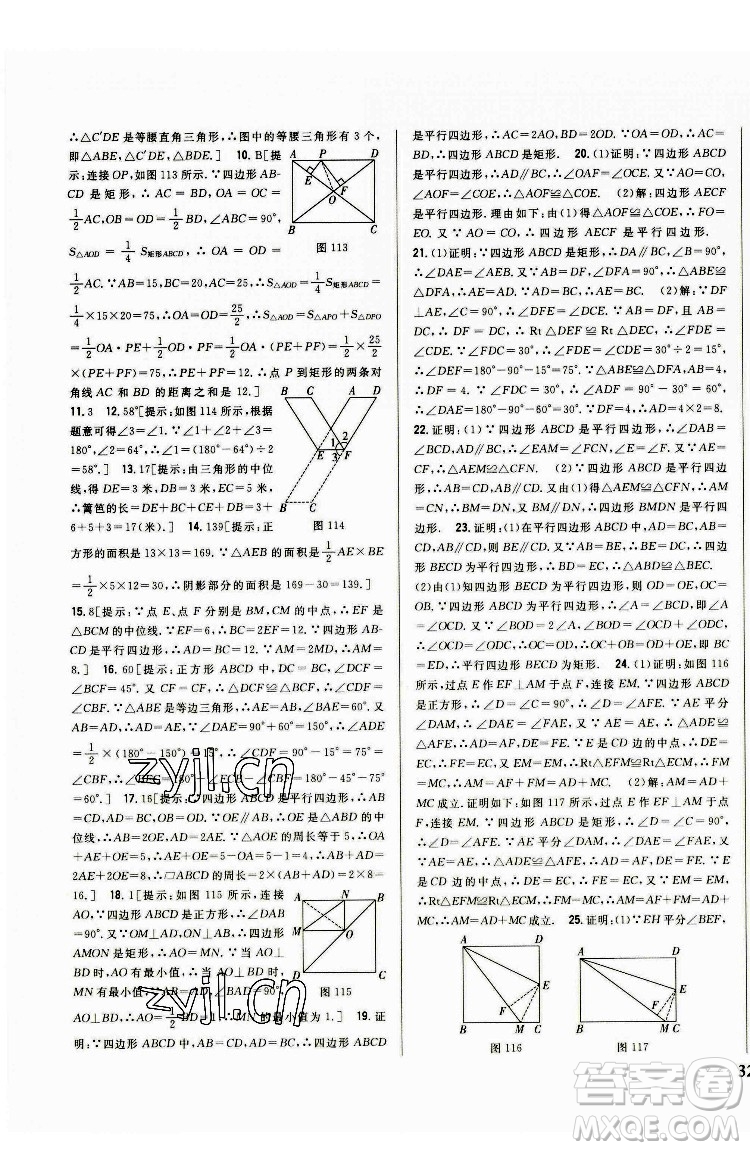 ∴△C′DE 是等腰直角三角形,∴图中的等腰三角形有 3 个,
即△ABE,△C′DE,△BDE.]  10. B[提
示:连接 OP,如图 113 所示.∵四边形 AB-
CD 是矩形,∴AC=BD,OA=OC=
1/2AC,OB=OD=1/2BD,∠ABC=90°,
S△AOD=1/4S矩形ABCD,∴OA=OD=
1/2AC.∵AB=15,BC=20,∴AC=25,S△AOD=1/4S矩形ABCD
=1/4×15×20=75,∴OA=OD=25/2,∴S△AOD=S△APO+S△DPO
=1/2OA·PE+1/2OD·PF=1/2OA·(PE+PF)=1/2×25/2
×(PE+PF)=75,∴PE+PF=12.∴点 P 到矩形的两条对
角线 AC 和 BD 的距离之和是 12.]
11. 3  12. 58°[提示:如图 114 所示,根据
题意可得∠3=∠1,∵∠1+∠2+∠3=
180°,∠2=64°,∴∠1=(180°−64°)÷2
=58°.]  13. 17[提示:由三角形的中位
线,得 DE=3 米,∴BD+DE+CE+BC=
∴篱笆的长=BD+DE+CE+BC=
6+5+3+3=17(米).]  14. 139[提示:正
方形的面积是 13×13=169.∵△AEB 的面积是1/2AE×BE
=1/2×5×12=30,∴阴影部分的面积是 169−30=139.]
15. 8[提示:∵点 E、点 F 分别是 BM,CM 的中点,∴EF 是
△BCM 的中位线.∵EF=6,∴BC=2EF=12.∵四边形 AB-
CD 是平行四边形,∴AD=BC=12.∵AM=2MD,∴AM=
8.]  16. 60°[提示:正方形 ABCD 中,BC=CD,∠DCF=
∠BCF=45°.又∵CF=CF,∴△DCF≌△BCF,∴∠CDF=
∠CBF.∵△ABE 是等边三角形,∴AE=AB,∠BAE=60°.又
∵AD=AB,∴AD=AE,∠DAE=90°+60°=150°,∴∠ADE=
1/2×(180°−150°)=15°,∴∠CDF=90°−15°=75°=
∠CBF,∴∠FBE=180°+∠CBF−∠ABE=180°−75°−60°=
17. 16[提示:∵四边形 ABCD 是平行四边形,∴AB=
DC,AD=BC,OB=OD.∵OE∥AB,∴OE 是△ABD 的中
位线,∴AB=2OE,AD=2AE.∵△AOE 的周长等于 5,∴OA
+AE+OE=5,∴AE+OE=5−OA=5−1=4,∴AB+AD=
2AE+2OE=8,∴▱ABCD 的周长=2×(AB+AD)=2×8=
16.]  18. 1[提示:如图 115 所示,连接
AO,∵四边形 ABCD 是正方形,∴∠DAB
=90°.又∵OM⊥AB,ON⊥AD,∴四边形
AMON 是矩形,∴AO=MN.当 AO⊥
BD 时,AO 有最小值,∴当 AO⊥BD 时,
MN 有最小值.∵AB=AD,∠BAD=90°,
AO⊥BD,∴AO=1/2BD=1,∴MN 的最小值为 1.]  19. 证
明:∵四边形 ABCD 是矩形,∴AC=BD.∵四边形 ABCD
图 113
图 114
图 115
是平行四边形,∴AC=2AO,BD=2DO.∵AO=OD,∴AC=
BD,∴四边形 ABCD 是矩形.  20. (1)证明:∵四边形 ABCD
是平行四边形,∴AD∥BC,∴∠OAF=∠OCE.∵OA=OC,
∠AOF=∠COE,∴△AOF≌△COE.  (2)解:四边形 AECF
是平行四边形.理由如下:由(1)得△AOF≌△COE,∴FO=
EO.又∵AO=CO,∴四边形 AECF 是平行四边形.
21. (1)证明:∵四边形 ABCD 是矩形,∴DA∥BC,∠B=90°,
∴∠DAE=∠AEB.∵DF⊥AE,∴∠DFA=90°,∴△ABE≌
△DFA.∴∠B=∠DFA,∴△ABE≌△DFA.  (2)解:∵DF
⊥AE,∴∠DFE=∠C=90°.∵DF=AB,且 AB=DC,∴DF
=DC.∵DE=DE,∴Rt△DEF≌Rt△DEC,∴∠FDE=
∠CDE=180°−90°−75°=15°,∴∠CDF=30°=90°÷2=
∴∠DAE=30°.又∵∠ADF=90°−30°=60°,∴∠DAF=30°.
∵∠AFD=180°−90°−60°=30°.∵DF=4,∴AD=4×2=8.
22. 证明:(1)∵四边形 ABCD 是平行四边形,∴∠DAB=
∠BCD,∴∠EAM=∠FCN.又∵AD∥BC,∴∠E=∠F.又
∵AE=CF,∴△AEM≌△CFN.  (2)∵四边形 ABCD 是平
行四边形,∴AB=CD,AB∥CD.又由(1),得△AEM≌△CFN,
∴AM=CN,∴BM=DN,又 BM∥DN,∴四边形 BMDN 是平行四
边形.  23. 证明:(1)在平行四边形 ABCD 中,AD=BC,AB=
CD,AB∥CD,则 BE∥CD.又∵AB=BE,∴BE=DC,∴四边形
BECD 为平行四边形,∴BD=EC.∴△ABD≌△BEC.
(2)由(1)知四边形 BECD 为平行四边形,则 OD=OE,OC=
OB.∵四边形 ABCD 为平行四边形,∴∠A=∠BCD,即∠A
=∠OCD.又∵∠BOD=2∠A,∠BOD=∠OCD+∠ODC,
∴∠OCD=∠ODC,∴OC=OD,∴OC+OB=OD+OE,即 BC
=ED,∴平行四边形 BECD 为矩形.  24. (1)证明:如图 116
所示,过点 E 作 EF⊥AM 于点 F,连接 EM.∵四边形 ABCD
是正方形,∴∠D=∠C=90°,∴ED⊥AD.又∵AE 平分
∠DAM,∴△ADE≌△AFE,∴FE=ED,AD=AF.∵E 是 CD
边的中点,∴DE=EC=FE.又∵EM=EM,∴Rt△EFM≌
Rt△ECM,∴FM=MC,∴AM=AF+FM=AD+MC.
∴MC,∴AM=AF+FM=AD+MC.  (2)解:AM=AD+
MC 成立.证明如下:如图 117 所示,过点 E 作 EF⊥AM 于点
F,连接 EM.∵四边形 ABCD 是矩形,∴∠D=∠C=90°,
∴∠D=∠AFE.又∵AE 平分∠DAM,∴∠DAE=∠FAE.又
∵AE=AE,∴△ADE≌△AFE,∴DE=FE,AD=AF.∵E
是 CD 边的中点,∴DE=CE,∴FE=EC.又∵EM=
EM,∴Rt△EFM≌Rt△ECM,∴FM=MC,∴AM=AF+FM
=AD+MC,∴AM=AD+MC 成立.  25. 证明:(1)∵EH 平分∠BEF,
图 116
图 117
32
zyjl.cn
zyjl.cn
答案圈
MXQE.COM